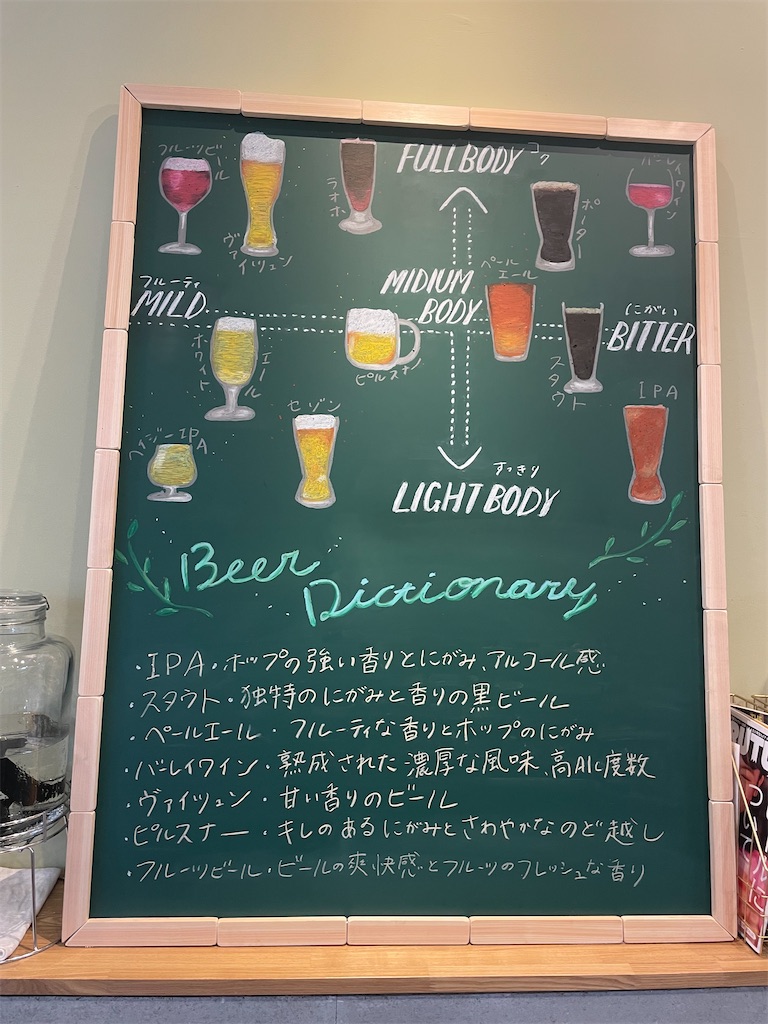 フルーツビール
ヴァイツェン
ラオホ
FULL BODY コク
ポーター
バーレイワイン
フルーティ
MILD
MIDIUM
BODY
ペールエール
にがい
BITTER
ホワイトエール
ピルスナー
スタウト
ヘイジーIPA
セゾン
IPA
すっきり
LIGHT BODY
Beer
Dictionary
・IPA・ホップの強い香りとにがみ、アルコール感
・スタウト・独特のにがみと香りの黒ビール
・ペールエール・フルーティな香りとホップのにがみ
・バーレイワイン・熟成された濃厚な風味、高Alc度数
・ヴァイツェン・甘い香りのビール
・ピルスナー・キレのあるにがみとさわやかなのど越し
・フルーツビール・ビールの爽快感とフルーツのフレッシュな香り